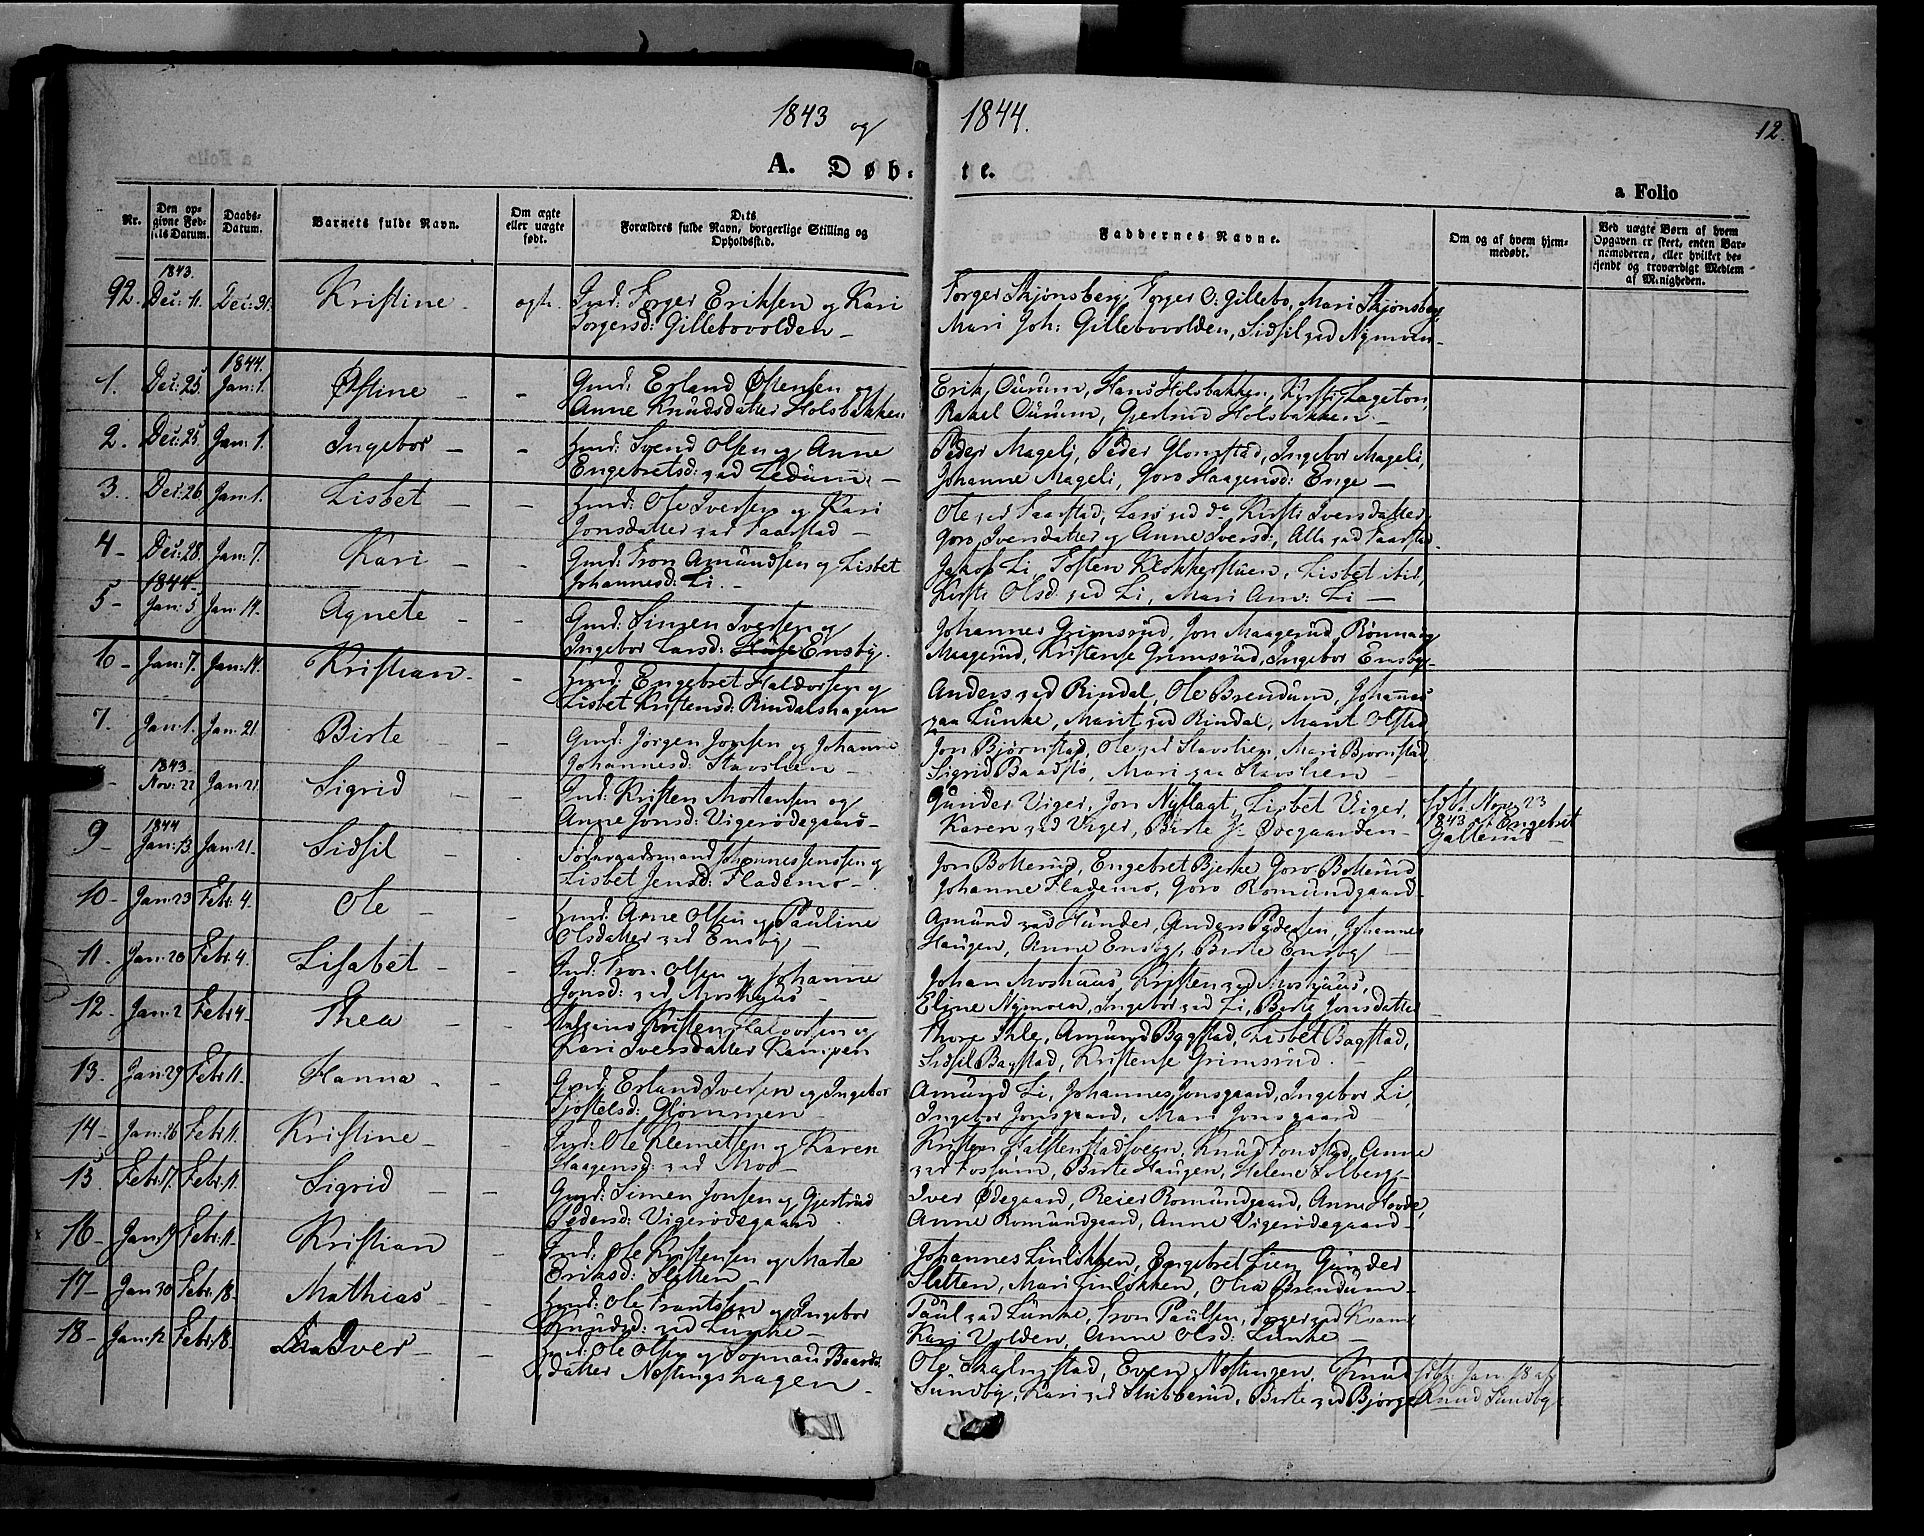 1843 og 1844.
12.
A. Døb- te.
a Folio
Nr.
Den opgivne Fødsels Datum.
Daabs-Datum.
Barnets fulde Navn.
Om ægte eller uægte født.
Dets Forældres fulde Navn, borgerlige Stilling og Opholdssted.
Faddernes Navne.
Om og af hvem hjemmedøbt.
Ved uægte Børn af hvem Opgaven er skeet, enten Barnemoderen, eller hvilket bekjendt og troværdigt Medlem af Menigheden.
1843.
92. Dec: 11. Dec: 31. Kristine - ægte. Gmd: Torger Eriksen og Kari
Torgersd: Gillebovolden -
Torger Skjønsberg, Torger O: Gillebo, Mari Skjønsberg,
Mari Joh: Gillebovolden, Sidsil ved Nymoen -
1844.
1. Dec: 25. Jan: 1. Østine - - Gmd: Erland Østensen og
Anne Knudsdatter Holsbakken
Erik Ourum, Hans Holsbakken, Kirsti Lageton,
Rakel Ourum, Gjertrud Holsbakken -
2. Dec: 25. Jan: 1. Ingebor - - Hmd: Svend Olsen og Anne
Engebretsd: ved Ledum -
Peder Mageli, Peder Glomstad, Ingebor Mageli,
Johanne Mageli, Goro Haagensd: Enge -
3. Dec: 26. Jan: 1. Lisbet - - Hmd: Ole Iversen og Kari
Jonsdatter ved Faarstad -
Ole ved Faarstad, Lars ved do Kirsti Iversdatter,
Goro Iversdatter og Anne Iversd:, Alle ved Faarstad -
4 - Dec: 28. Jan: 7. Kari - - Gmd: Tron Amundsen og Lisbet
Johannesd: Li. -
Jakob Li, Tosten Klokkerstuen, Lisbet ibid,
Kirsti Olsd: ved Li, Mari Am: Li -
1844 -
5 - Jan: 5. Jan: 14. Agnete - - Gmd: Simen Iversen og
Ingebor Larsd: Ensby.
Johannes Grimsrud, Jon Maagerud, Rønnaug
Maagerud, Kristense Grimsrud, Ingebor Ensby -
6 - Jan: 7. Jan: 14. Kristian - - Hmd: Engebret Haldorsen og
Lisbet Kristensd: Rindalshagen
Anders ved Rindal, Ole Brendum, Johannes
paa Lunke, Marit ved Rindal, Marit Olstad
7. Jan: 1. Jan: 21. Birte - - Gmd: Jørgen Jonsen og Johanne
Johannesd: Stavslien -
Jon Bjørnstad, Ole ved Stavslien, Mari Bjørnstad,
Sigrid Baadstø, Mari paa Stavslien -
1843 -
Nov: 22 Jan: 21. Sigrid - - Ind: Kristen Mortensen og
Anne Jonsd: Vigerødegaard -
Gunder Viger, Jon Nyflagt, Lisbet Viger,
Karen ved Viger, Birte J: Ødegaarden -
døbt Nov: 23
1843 af Engebret
Gallerud -
1844
9 - Jan: 13. Jan: 21. Sidsil - - Føderaadsmand Johannes Jensen og
Lisbet Jensd: Flademo -
Jon Botterud, Engebret Bjerke, Goro Botterud
Johanne Flademo, Goro Romundgaard
10 - Jan: 23 Febr: 4. Ole - - Hmd: Arne Olsen og Pauline
Olsdatter ved Ensby -
Amund ved Hunder, Anders Pedersen, Johannes
Haugen, Anne Ensby, Birte Ensby
11. Jan: 20 Febr: 4. Lisabet - - Ind: Tron Olsen og Johanne
Jonsd: ved Moshuus -
Johan Moshuus, Kristen ved Moshuus,
Eline Nymoen, Ingebor ved Li, Birte Jonsdatter
12. Jan: 2 Febr: 4 - Thea - - Kristen Halvorsen og
Kari Iversdatter Kampen
Thore Ihle, Amund Bagstad, Lisbet Bagstad,
Sidsil Bagstad, Kristense Grimsrud.
13. Jan: 29 Febr: 11. Hanna - - Gmd: Erland Iversen og Ingebor
Sjøstelsd: Glømmen -
Amund Li, Johannes Jonsgaard, Ingebor Li,
Ingebor Jonsgaard, Mari Jonsgaard
14 - Jan: 26 Febr: 11. Kristine - Ind: Ole Klemetsen og Karen
Haagensd: ved Moe -
Kristen Halstenstadsveen, Knud Fonstad, Anne
ved Fossum, Birte Haugen, Helene Solberg -
15. Febr: 17. Febr: 11. Sigrid - - Gmd: Simen Jonsen og Gjertrud
Pedersd: Vigerødegaard.
Iver Ødegaard, Reier Romundgaard, Anne Hovde,
Anne Romundgaard, Anne Vigerødegaard -
16 - Jan: 19 Febr: 11 - Kristian - Ind: Ole Kristensen og Marte
Eriksd: Sletten -
Johannes Linløkken, Engebret Lien, Gunder
Sletten, Mari Linløkken, Olia Brendum -
17 - Jan: 30 Febr: 18 - Mathias - - Hmd: Ole Frantsen og Ingebor
Knudsd: ved Lunke -
Paul ved Lunke, Tron Paulsen, Torger ved Kram
Kari Volden, Anne Olsd: Lunke -
18 - Jan: 12 Febr: 18 - Iver - - Hmd: Ole Olsen og Baards
datter Nostingshagen -
Ole Skalmstad, Even Nostingen, Knud
Sundby, Kari ved Stubberud, Birte ved Bjørge
døbt Jan: 18 af
Knud Sundby -